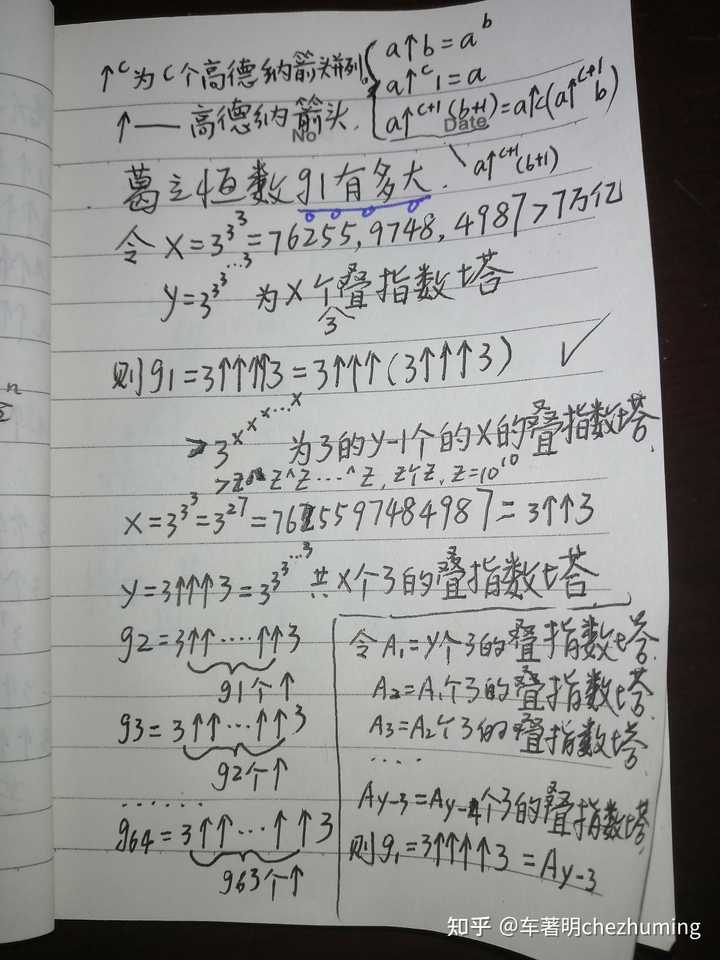 ↑ᶜ为c个高德纳箭头并列
↑——高德纳箭头.
a↑b=a^b
a↑ᶜ1=a
a↑ᶜ⁺¹(b+1)=a↑c(a↑ᶜ⁺¹b)
No
Date
a↑ᶜ⁺¹(b+1)
葛立恒数g1有多大.
令X=3^3^3=76255,9748,4987>7万亿
y=3^3^3^…^3 为X个叠指数塔
3
则g1=3↑↑↑↑3=3↑↑↑(3↑↑↑3) ✓
>3^X^X^X^…^X 为3的y-1个的X的叠指数塔.
Z^Z…^Z, Z个Z, Z=10^10
X=3^3^3=3^27=7625597484987=3↑↑3
y=3↑↑↑3=3^3^3^…^3 共X个3的叠指数塔
g2=3↑↑……↑↑3
g1个↑
g3=3↑↑…↑↑3
g2个↑
……
g64=3↑↑…↑↑3
g63个↑
令A₁=y个3的叠指数塔.
A₂=A₁个3的叠指数塔.
A₃=A₂个3的叠指数塔.
....
Ay-3=Ay-4个3的叠指数塔.
则g₁=3↑↑↑↑3=Ay-3
知乎 @车著明chezhuming